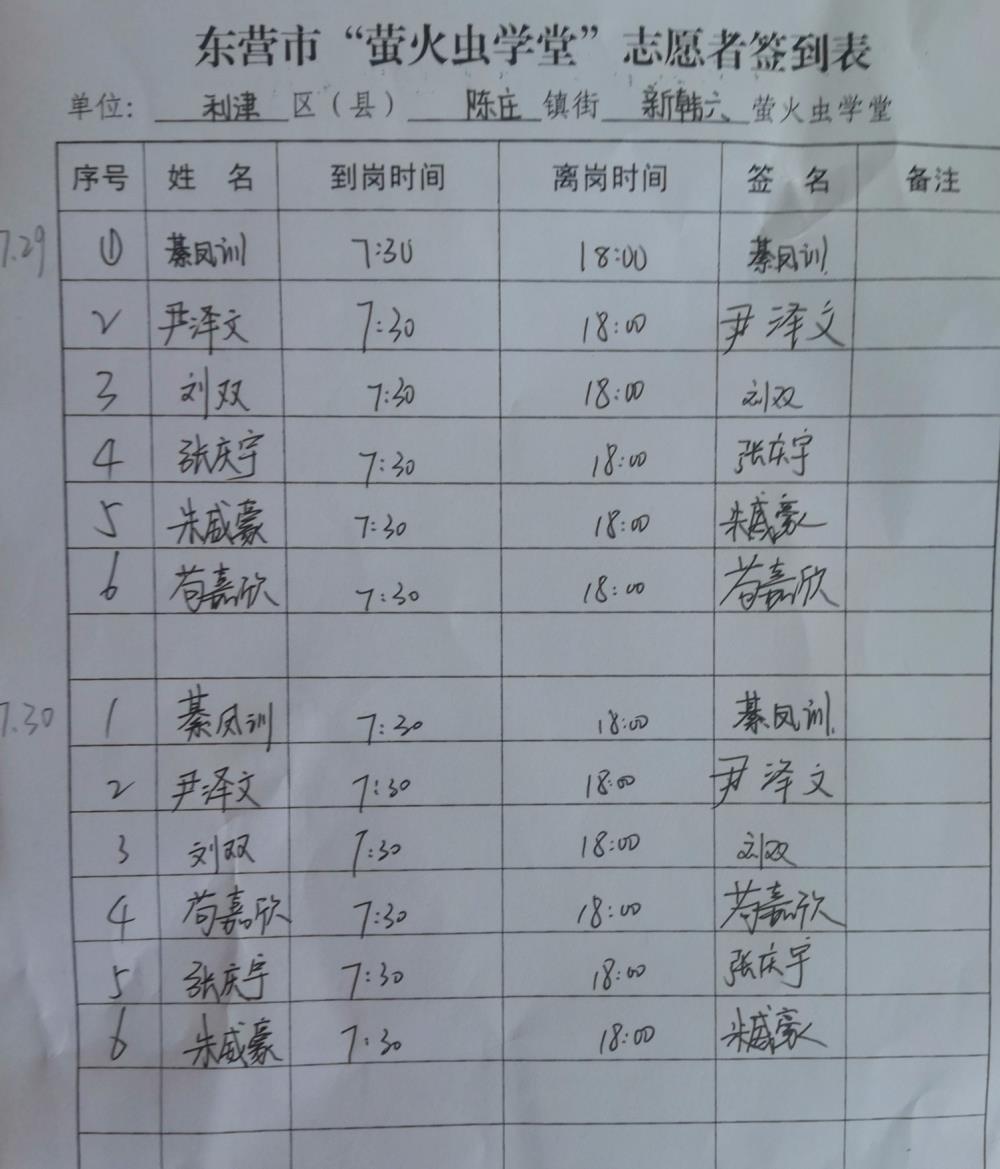 东营市“萤火虫学堂”志愿者签到表
单位: 利津 区(县) 陈庄 镇街 新韩六 萤火虫学堂
序号 姓 名 到岗时间 离岗时间 签 名 备注
7.29 ① 綦凤训 7:30 18:00 綦凤训
2 尹泽文 7:30 18:00 尹泽文
3 刘双 7:30 18:00 刘双
4 张庆宇 7:30 18:00 张庆宇
5 朱威豪 7:30 18:00 朱威豪
6 苟嘉欣 7:30 18:00 苟嘉欣
7.30 1 綦凤训 7:30 18:00 綦凤训
2 尹泽文 7:30 18:00 尹泽文
3 刘双 7:30 18:00 刘双
4 苟嘉欣 7:30 18:00 苟嘉欣
5 张庆宇 7:30 18:00 张庆宇
6 朱威豪 7:30 18:00 朱威豪